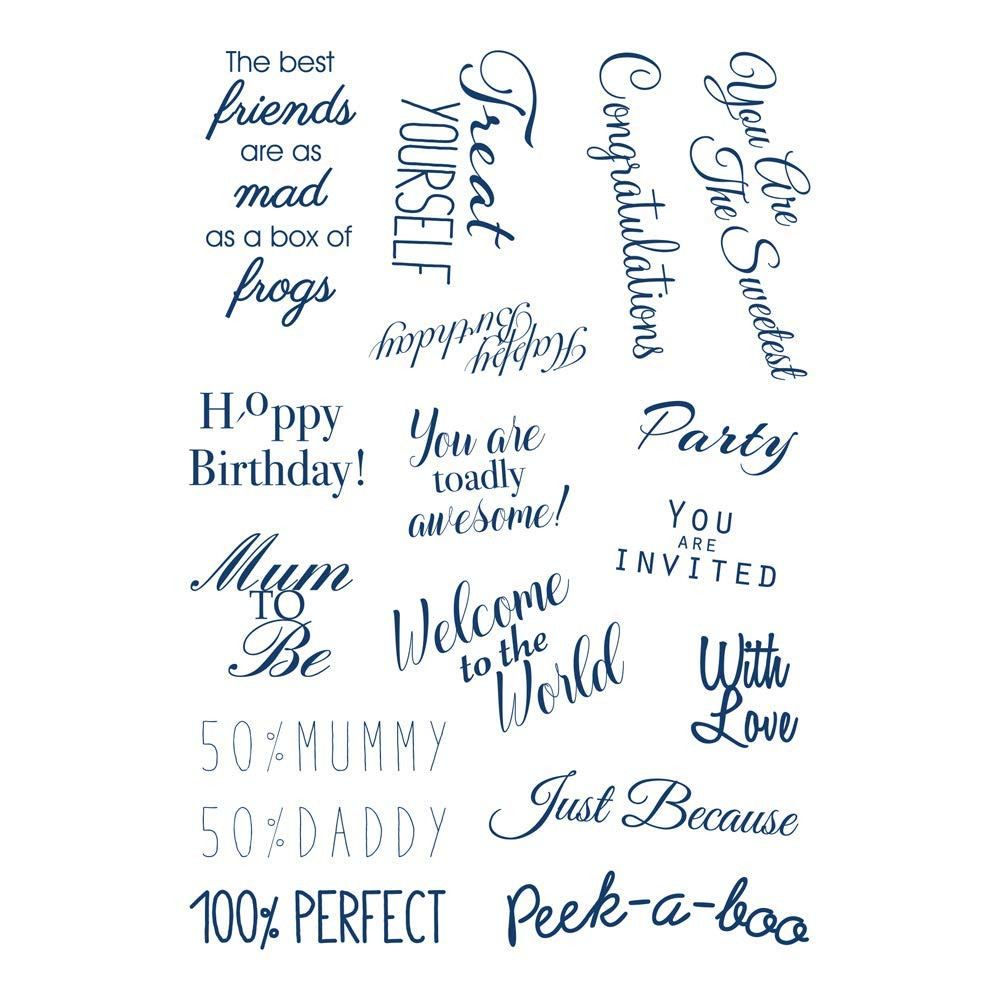 The best
friends
are as
mad
as a box of
frogs
Treat
YOURSELF
Congratulations
You Are
The Sweetest
Happy
Birthday
Hoppy
Birthday!
You are
toadly
awesome!
Party
YOU
ARE
INVITED
Mum
TO
Be
Welcome
to the
World
With
Love
50%MUMMY
50%DADDY
100% PERFECT
Just Because
Peek-a-boo